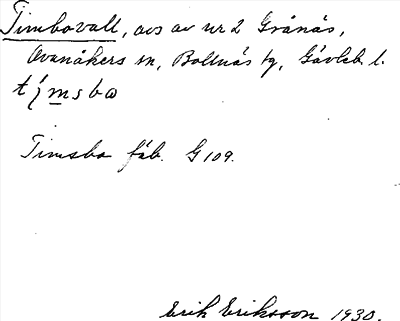 Timbovall, avs av nr 2 Grånäs,
Ovanåkers sn, Bollnäs tg, Gävleb. l.
Timsbo fäb. G 109.
Erik Eriksson 1930.